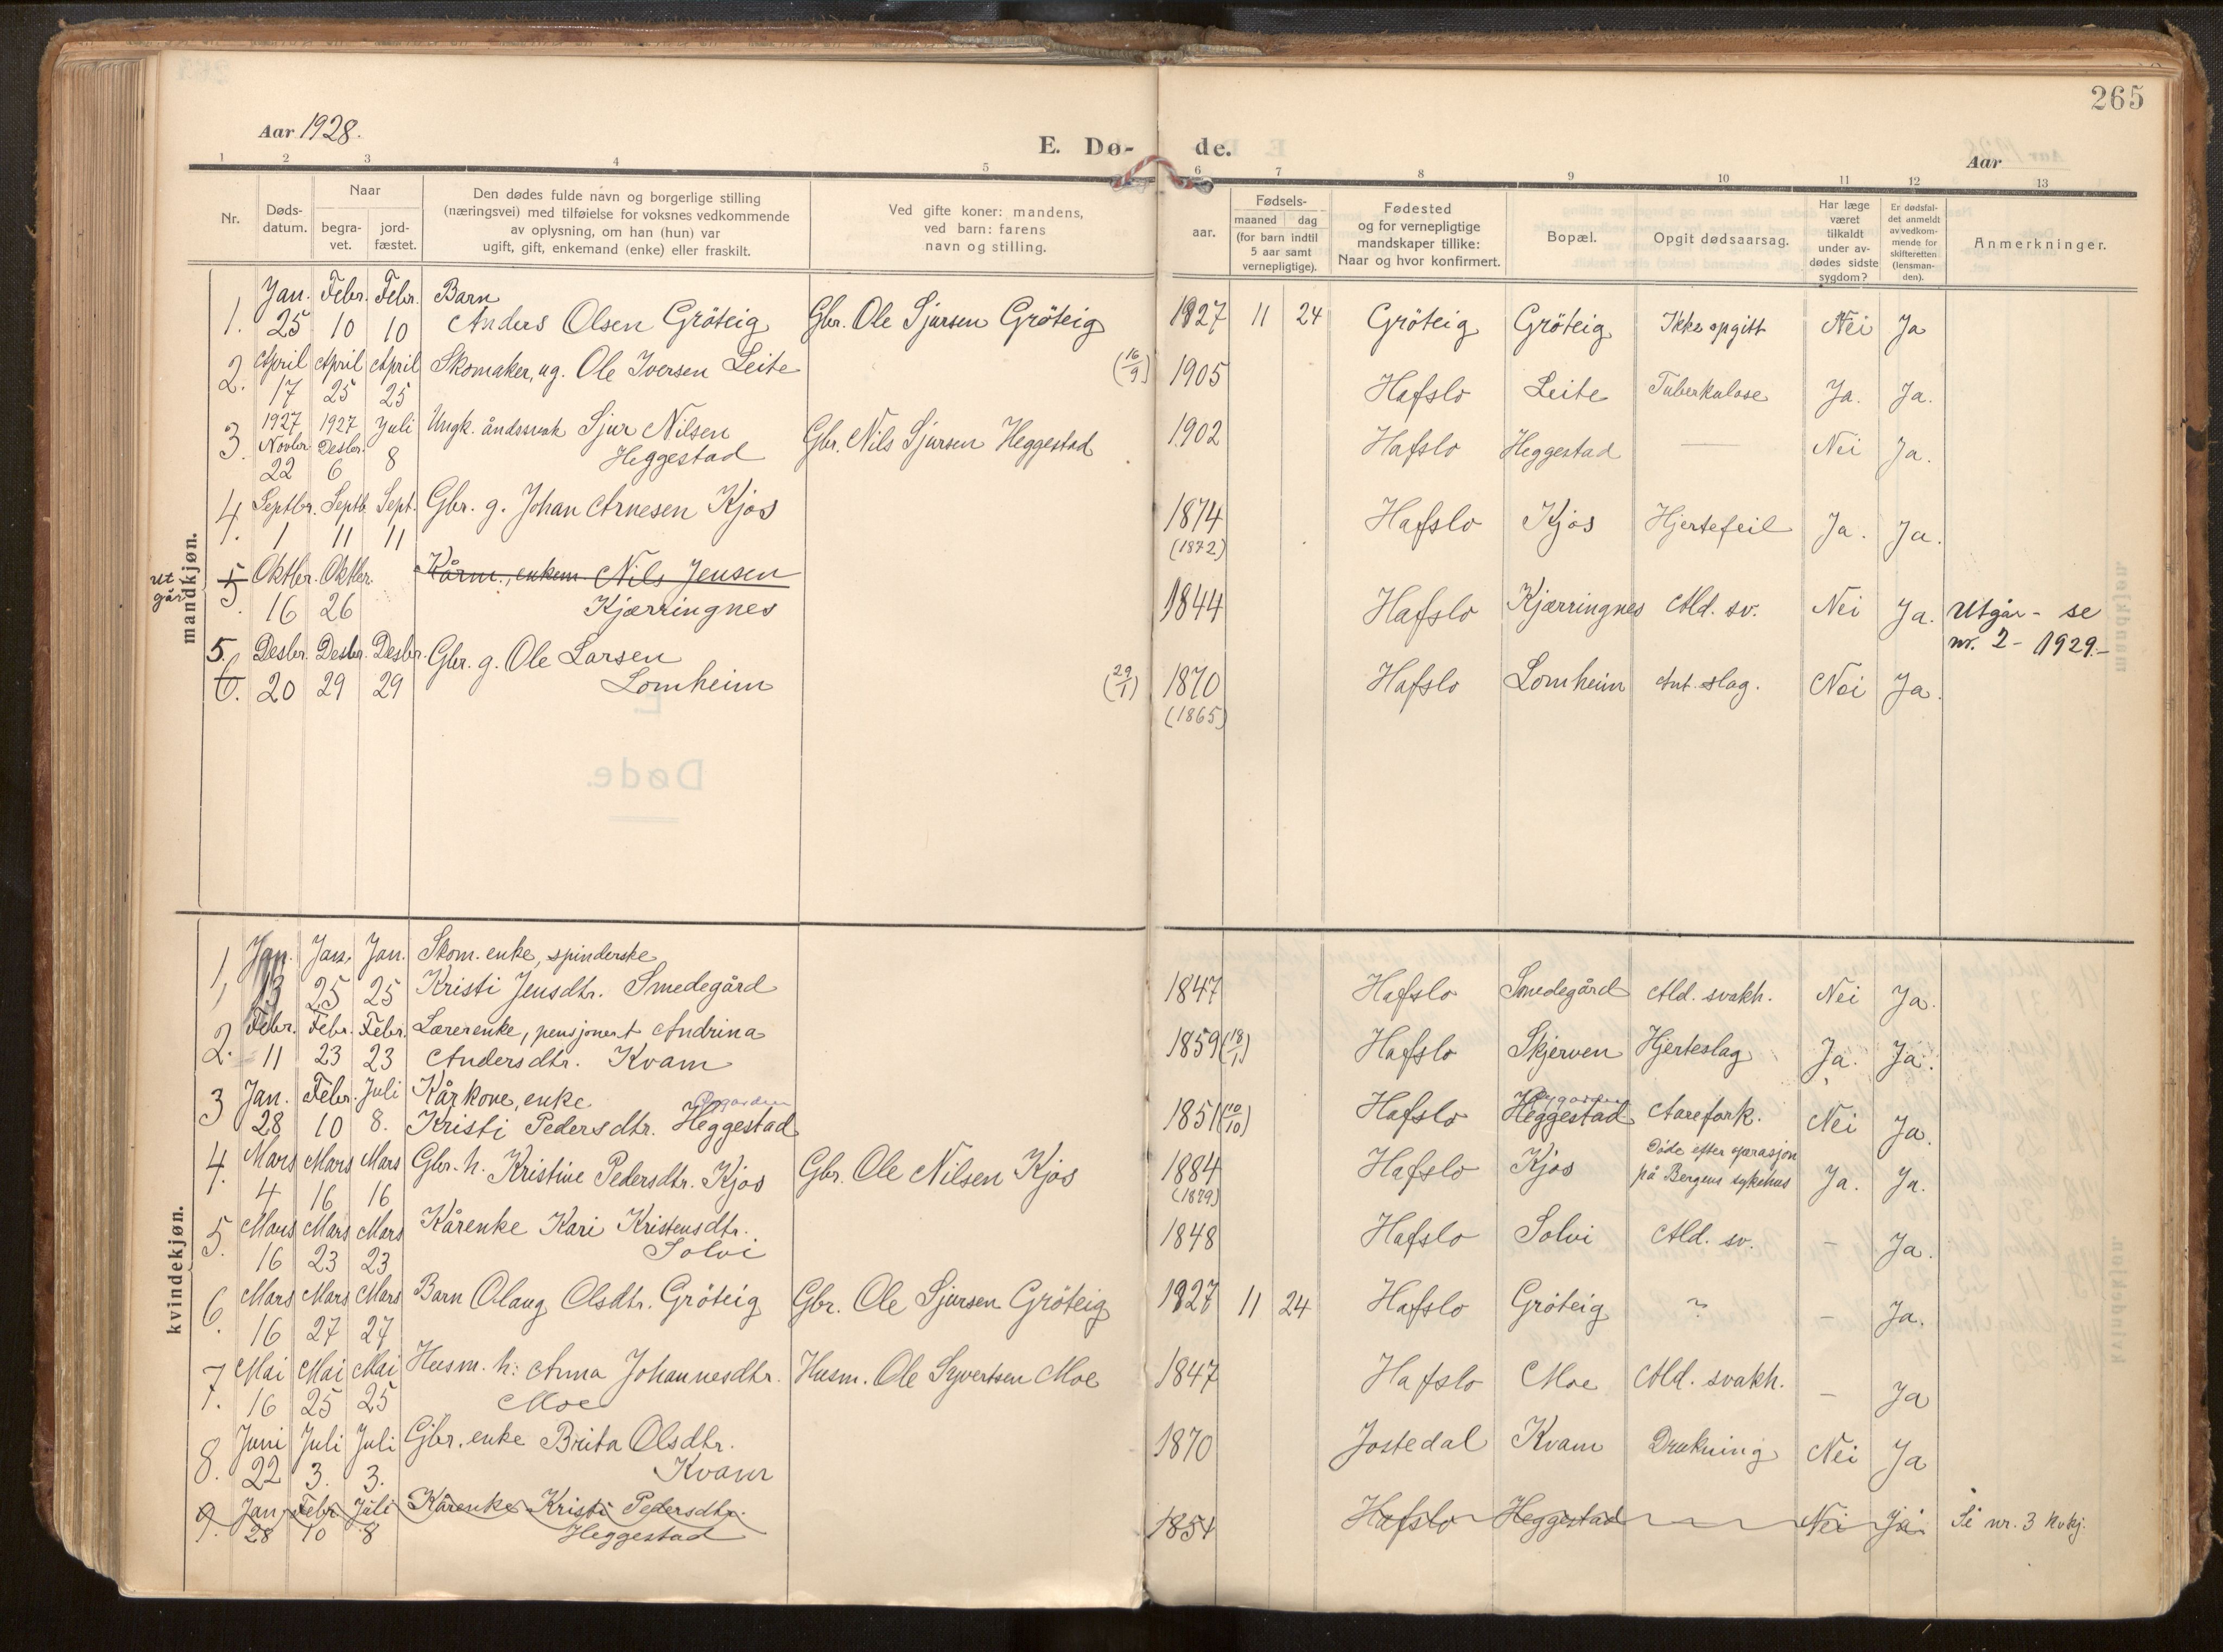 265
Aar 1928.
E. Dø- de.
Aar
1 2 3 4 5 6 7 8 9 10 11 12 13
Nr.
Døds-
datum.
Naar
begra-
vet.
jord-
fæstet.
Den dødes fulde navn og borgerlige stilling
(næringsvei) med tilføielse for voksnes vedkommende
av oplysning, om han (hun) var
ugift, gift, enkemand (enke) eller fraskilt.
Ved gifte koner: mandens,
ved barn: farens
navn og stilling.
aar.
Fødsels-
maaned dag
(for barn indtil
5 aar samt
vernepligtige).
Fødested
og for vernepligtige
mandskaper tillike:
Naar og hvor konfirmert.
Bopæl.
Opgit dødsaarsag.
Har læge
været
tilkaldt
under av-
dødes sidste
sygdom?
Er dødsfal-
det anmeldt
av vedkom-
mende for
skifteretten
(lensman-
den).
Anmerkninger.
mandkjøn.
Jan. Febr. Febr. Barn
1. 25 10 10 Anders Olsen Gröteig Gbr. Ole Sjursen Gröteig 1927 11 24 Gröteig Gröteig Ikke opgitt Nei Ja
2. April April April Skomaker, ug. Ole Iversen Leite (16/9) 1905 Hafslo Leite Tuberkulose Ja. Ja.
17 25 25
3. 1927 1927 Juli Ungk. åndssvak Sjur Nilsen Gbr. Nils Sjursen Heggestad 1902 Hafslo Heggestad — Nei Ja.
Novbr. Desbr. 8 Heggestad
22 6
4. Septbr. Septb. Sept. Gbr. g. Johan Arnesen Kjos 1874 Hafslo Kjos Hjertefeil Ja. Ja.
1 11 11 (1872)
ut
går
5. Oktbr. Oktbr. Kårm., enkem. Nils Jensen
16 26 Kjærringnes 1844 Hafslo Kjærringnes Ald. sv. Nei Ja. Utgår - se
nr. 2 - 1929.-
5. Desbr. Desbr. Desbr. Gbr. g. Ole Larsen
6. 20 29 29 Lomheim (29/1) 1870 Hafslo Lomheim Ant. slag. Nei Ja.
(1865)
kvindekjøn.
1. Jan. Jan. Jan. Skom. enke, spinderske
13 25 25 Kristi Jensdtr. Smedegård 1847 Hafslo Smedegård Ald. svakh. Nei Ja.
2. Febr. Febr. Febr. Lærerenke, pensjonert Andrina
11 23 23 Andersdtr. Kvam 1859 (18/1) Hafslo Skjerven Hjerteslag Ja. Ja.
3 Jan. Febr. Juli Kårkone, enke
28 10 8. Kristi Pedersdtr. Heggestad 1851 (10/10) Hafslo Heggestad Aarefork. Nei Ja.
4. Mars Mars Mars Gbr. h. Kristine Pedersdtr. Kjos Gbr. Ole Nilsen Kjos 1884 Hafslo Kjos Döde efter operasjon
4 16 16 (1879) på Bergens sykehus Ja. Ja.
5. Mars Mars Mars Kårenke Kari Kristensdtr.
16 23 23 Solvi 1848 Hafslo Solvi Ald. sv. - Ja.
6. Mars Mars Mars Barn Olaug Olsdtr. Gröteig Gbr. Ole Sjursen Gröteig 1927 11 24 Hafslo Gröteig ~ - Ja.
16 27 27
7. Mai Mai Mai Husm. h: Anna Johannesdtr. Husm. Ole Syvertsen Moe 1847 Hafslo Moe Ald. svakh. - Ja
16 25 25 Moe
8. Juni Juli Juli Gbr. enke Brita Olsdtr. 1870 Jostedal Kvam Drukning Nei Ja
22 3. 3. Kvam
9. Jan. Febr. Juli Kårenke Kristi Pedersdtr. 1851 Hafslo Heggestad Nei Ja. Se nr. 3 kvkj.
28 10 8 Heggestad